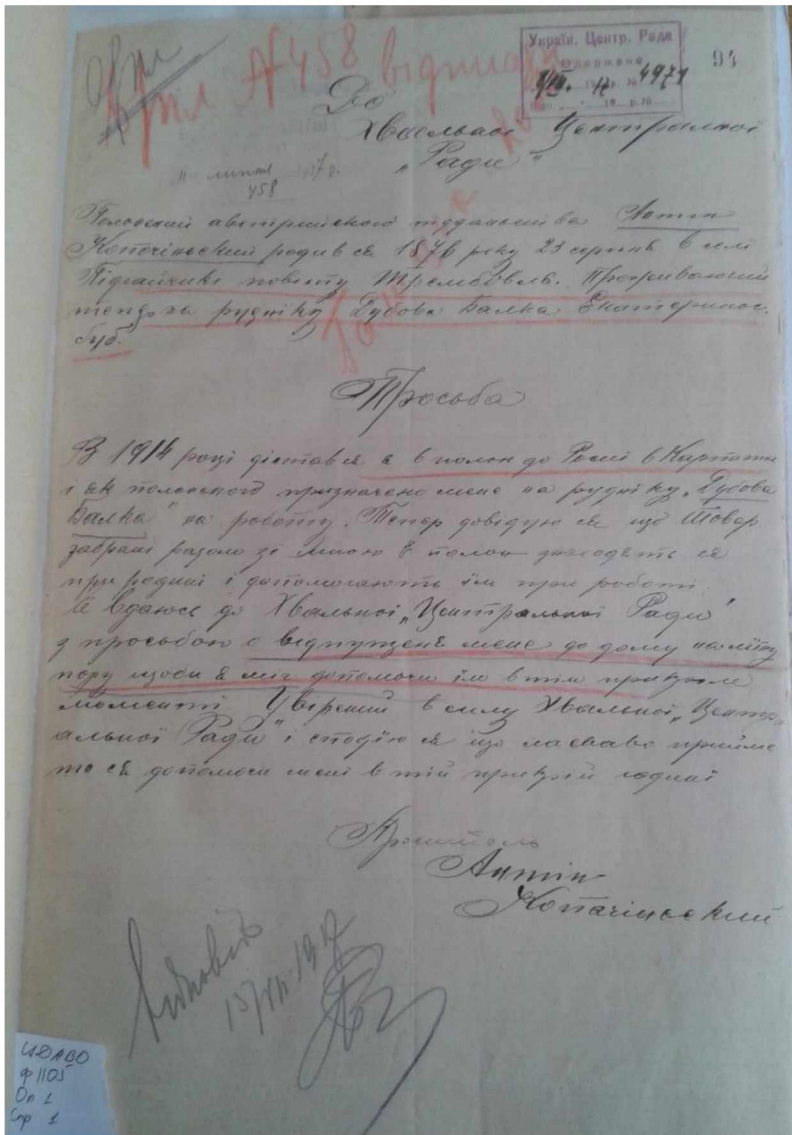 Україн. Центр. Рада
Одержано
4971
94
№ 458
До
Хвальної Центральної
"Ради"
11 липня 17 р.
458
Полонений австрийского підданьства Антін
Копачіньский родив ся 1876 року 23 серпня в селі
Підгайчики повіту Трембовля. Проживаючий
тепер на рудніку Дубова Балка Екатеринос.
губ.
Просьба
В 1914 році дістався я в полон до Росиї в Карпатах
і як полоненого призначено мене на рудніку "Дубова
Балка" на роботу. Тепер довідую ся що Товар.
забрані разом зі мною в полон находять ся
при родині і допомогають їм при роботі.
Я вдаюсь до Хвальної "Центральної Ради"
з просьбою о відпущенє мене до дому на літну
пору щоби я міг допомочи їм в тім прикрім
моменті. Увірений в силу Хвальної "Центр-
альної Ради" і сподію ся що ласкаво прийме
те ся допомочи мені в тій прикрій годині
Проситель
Антін
Копачіньский
Відповідь
15/VII 1917
ЦДАВО
ф 1105
Оп 1
Спр 1